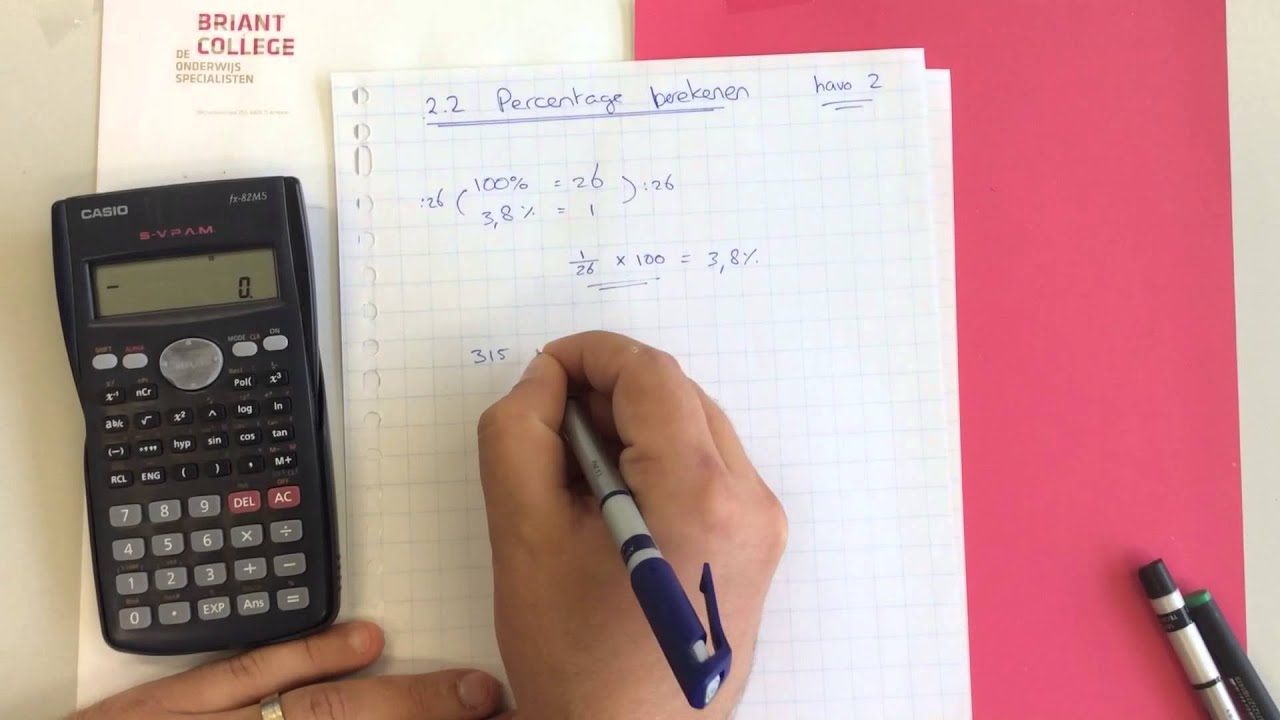 BRIANT
COLLEGE
DE
ONDERWIJS
SPECIALISTEN
2.2 Percentage berekenen havo 2
:26 ( 100% = 26 ) :26
3,8% = 1
1/26 × 100 = 3,8%
315
CASIO fx-82MS
S-V.P.A.M.
- 0.
SHIFT ALPHA MODE CLR ON
x⁻¹ nCr Pol( x³
ab/c √ x² ^ log ln
(−) °'" hyp sin cos tan
RCL ENG ( ) , M+
7 8 9 DEL AC
4 5 6 × ÷
1 2 3 + −
0 . EXP Ans =